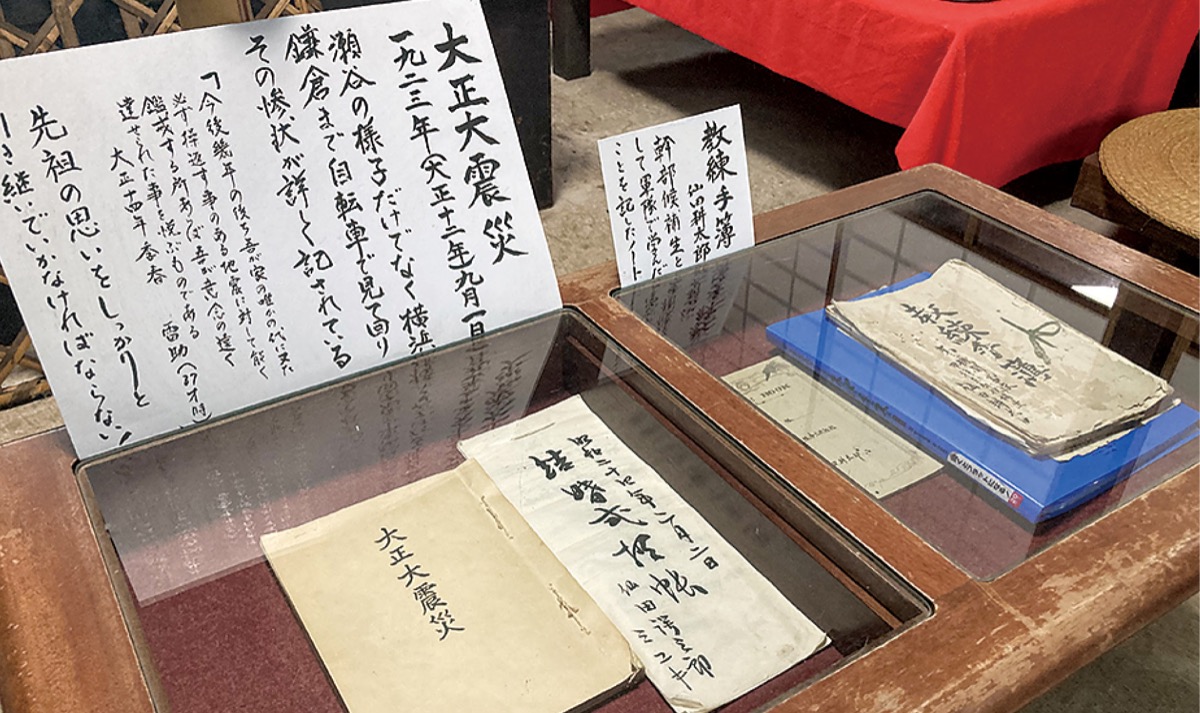 大正大震災
一九二三年(大正十二年)九月一日
瀬谷の様子だけでなく横浜
鎌倉まで自転車で見て回り
その惨状が詳しく記されている
「今後幾年の後ち吾が家の唯かの代に又た
必ず操返す事のある地震に対して能く
鑑戒する所あらば吾が意念の遠く
達せされた事を悦ぶものである
大正十四年春春 雷助(27才時)
先祖の思いをしっかりと
引き継いでいかなければならない!
教練手簿
仙田耕太郎
幹部候補生と
して軍隊で学んだ
ことを記したノート
大正大震災
昭和二十四年二月二日
結婚式控帳
仙田
教練手簿